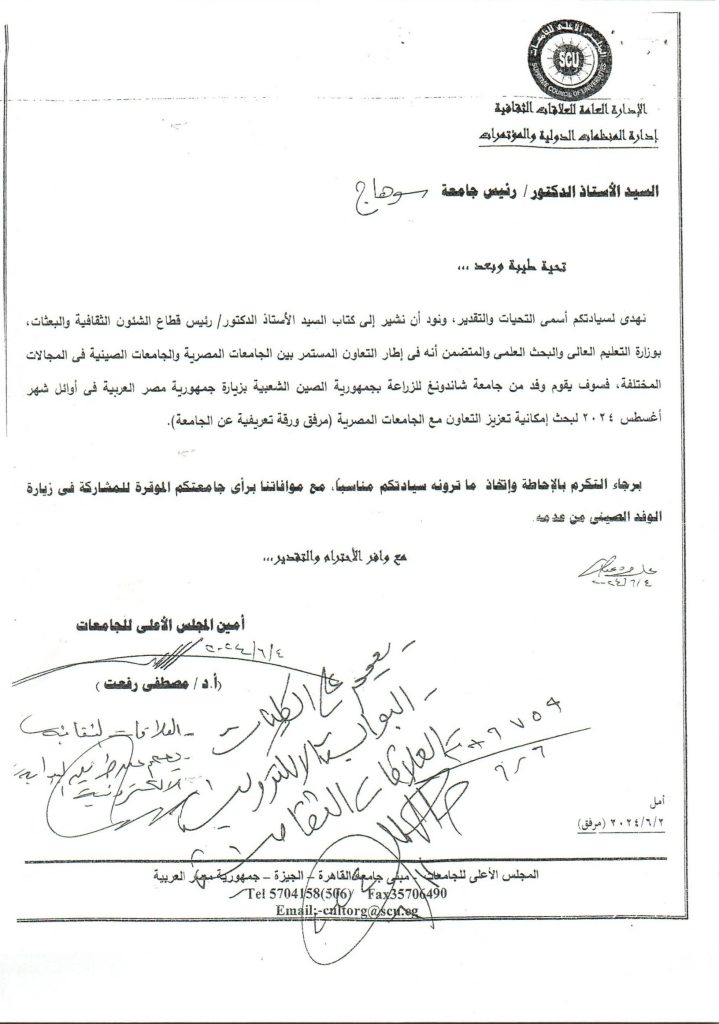 المجلس الأعلى للجامعات
SCU
SUPREME COUNCIL OF UNIVERSITIES
الإدارة العامة للعلاقات الثقافية
إدارة المنظمات الدولية والمؤتمرات
السيد الأستاذ الدكتور/ رئيس جامعة سوهاج
تحية طيبة وبعد ...
نهدى لسيادتكم أسمى التحيات والتقدير، ونود أن نشير إلى كتاب السيد الأستاذ الدكتور/ رئيس قطاع الشئون الثقافية والبعثات،
بوزارة التعليم العالى والبحث العلمى والمتضمن أنه فى إطار التعاون المستمر بين الجامعات المصرية والجامعات الصينية فى المجالات
المختلفة، فسوف يقوم وفد من جامعة شاندونغ للزراعة بجمهورية الصين الشعبية بزيارة جمهورية مصر العربية فى أوائل شهر
أغسطس ٢٠٢٤ لبحث إمكانية تعزيز التعاون مع الجامعات المصرية (مرفق ورقة تعريفية عن الجامعة).
برجاء التكرم بالإحاطة وإتخاذ ما ترونه سيادتكم مناسباً، مع موافاتنا برأى جامعتكم الموقرة للمشاركة فى زيارة
الوفد الصينى من عدمه.
مع وافر الأحترام والتقدير...
٢٠٢٤/٦/٤
أمين المجلس الأعلى للجامعات
٢٠٢٤/٦/٤
(أ.د/ مصطفى رفعت)
- يعمم على الكليات
- البوابة الالكترونية
- العلاقات الثقافية
- العلاقات الثقافية
الالكترونية
٦/٦
أمل
٢٠٢٤/٦/٢ (مرفق)
المجلس الأعلى للجامعات - مبنى جامعة القاهرة – الجيزة – جمهورية مصر العربية
Tel 5704158(506) Fax35706490
Email:-cultorg@scu.eg